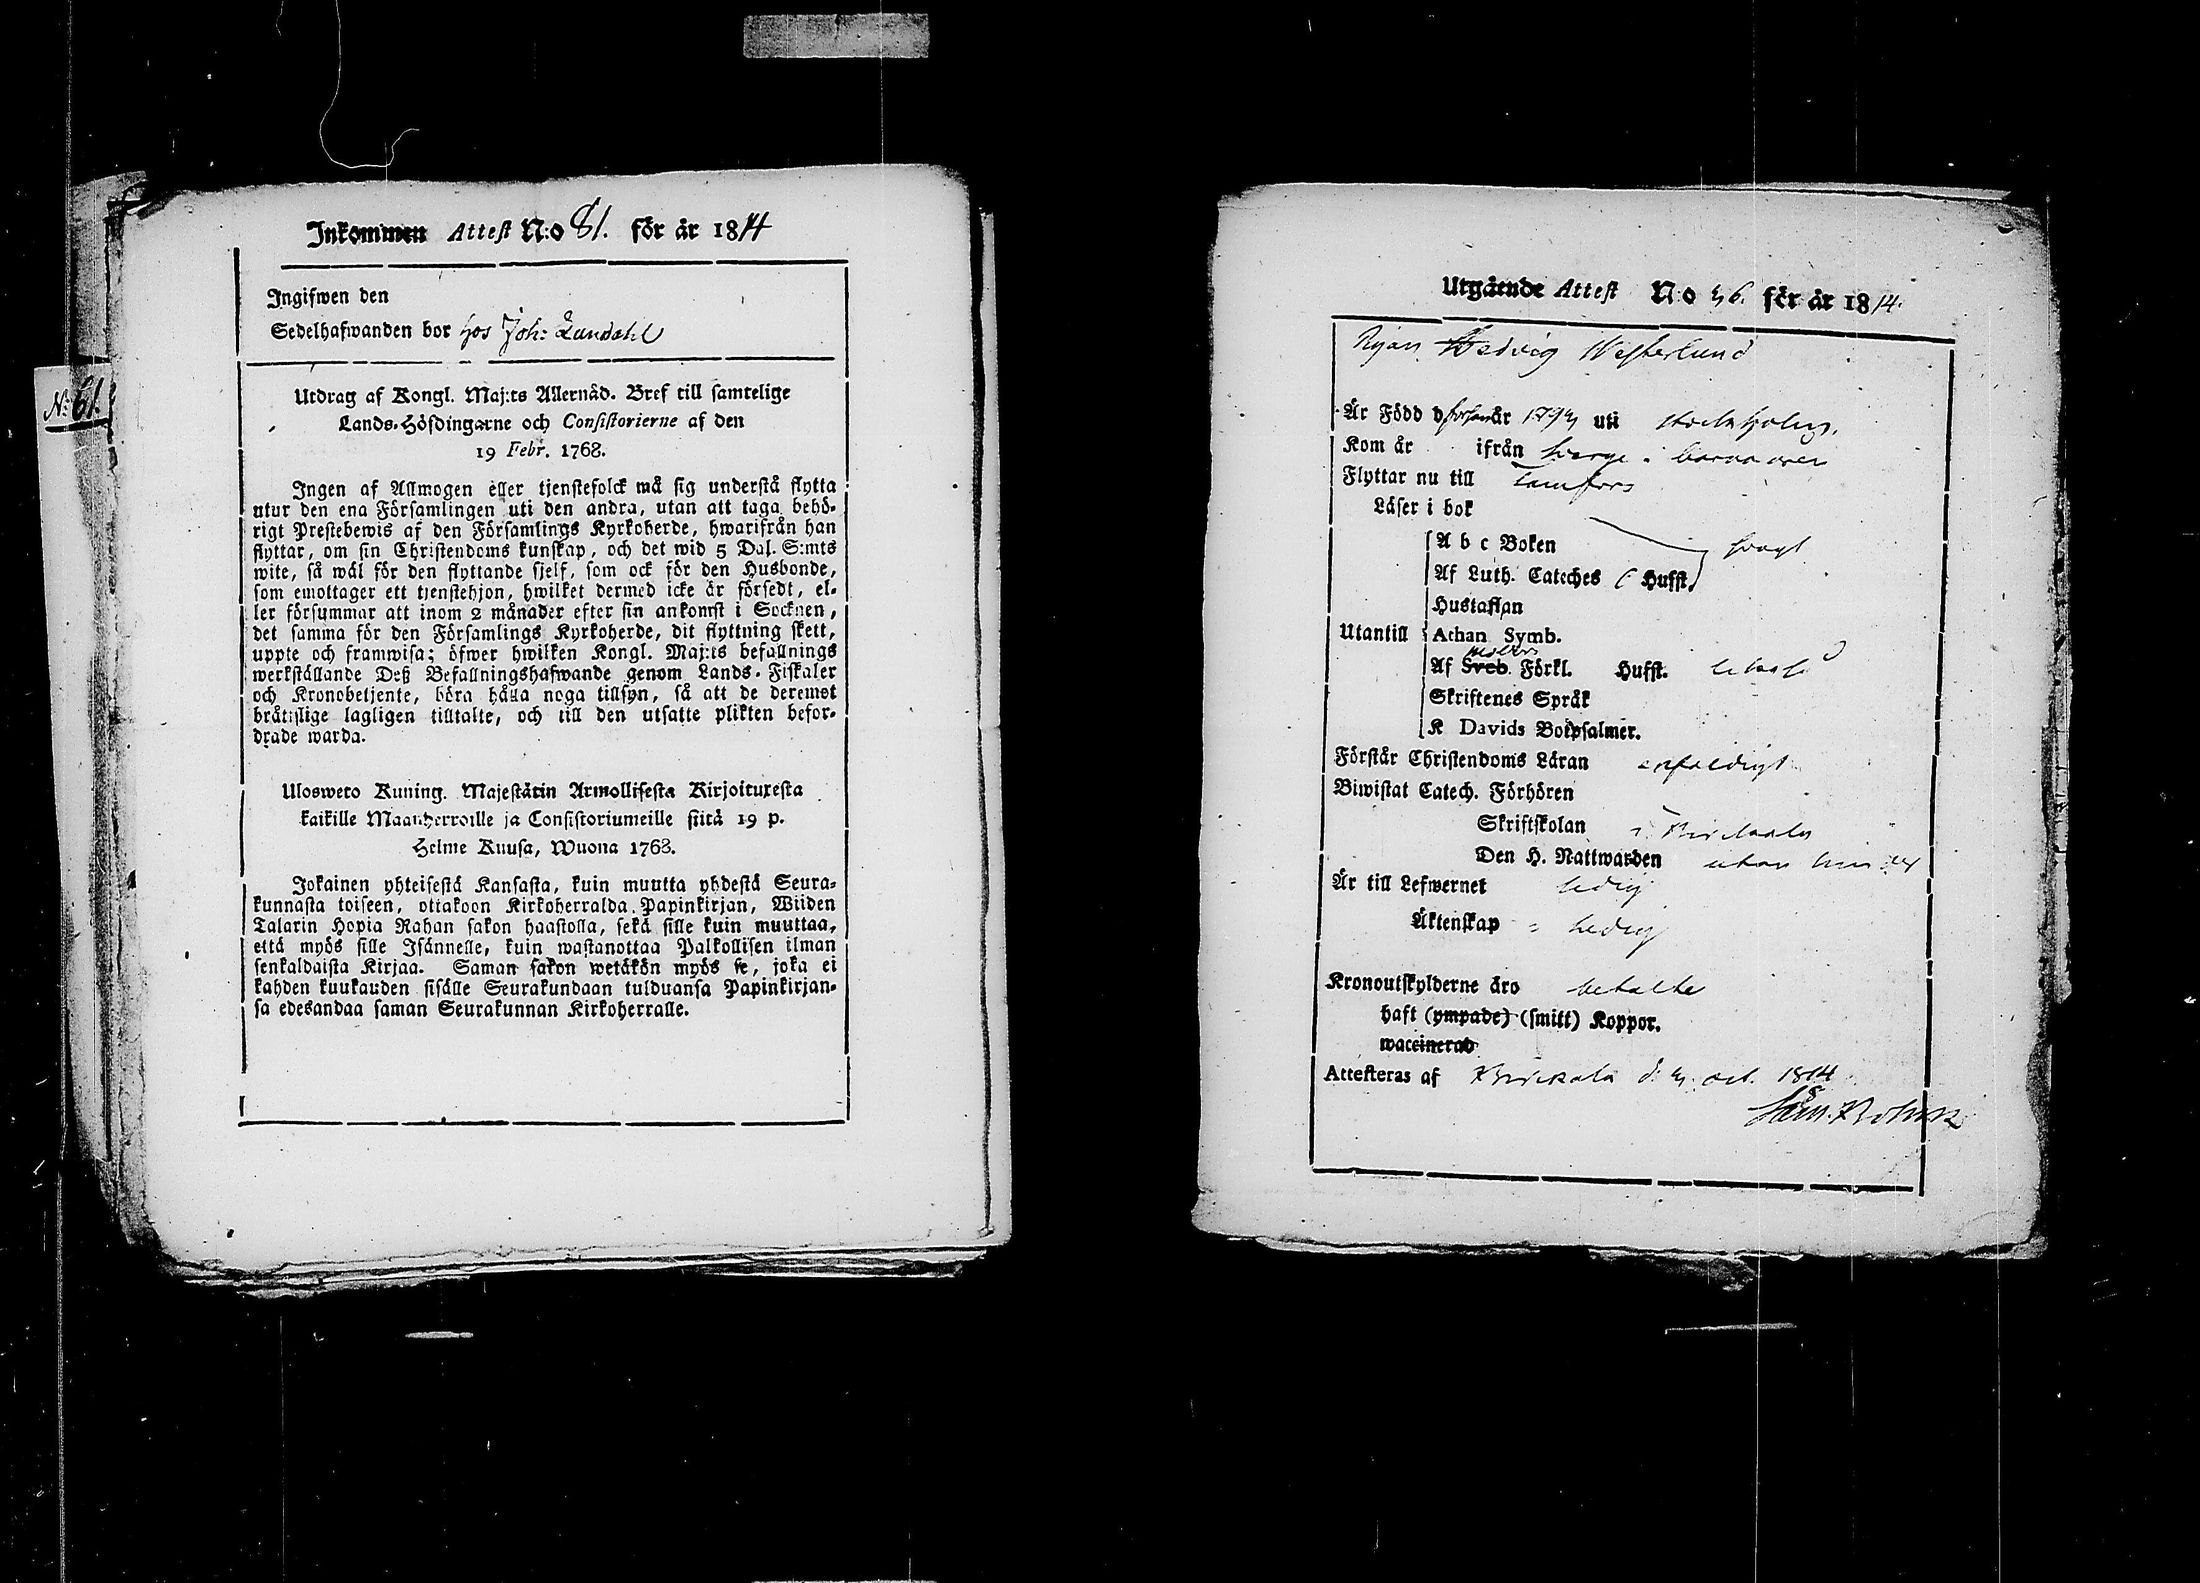 Inkommen Attest N:o 81. för år 1814
Ingifwen den
Sedelhafwanden bor hos Joh: Lundahl
Utdrag af Kongl. Maj:ts Allernåd. Bref till samtelige
Lands-Höfdingarne och Consistorierne af den
19 Febr. 1768.
Ingen af Allmogen eller tjenstefolck må sig understå flytta
utur den ena Församlingen uti den andra, utan att taga behö-
rigt Prestebewis af den Församlings Kyrkoherde, hwarifrån han
flyttar, om sin Christendoms kunskap, och det wid 5 Dal. S:mts
wite, så wäl för den flyttande sjelf, som ock för den Husbonde,
som emottager ett tjenstehjon, hwilket dermed icke är försedt, el-
ler försummar att inom 2 månader efter sin ankomst i Socknen,
det samma för den Församlings Kyrkoherde, dit flyttning skett,
uppte och framwisa; öfwer hwilken Kongl. Maj:ts befallnings
werkställande Deß Befallningshafwande genom Lands-Fiskaler
och Kronobetjente, böra hålla noga tillsyn, så att de deremot
bråttslige lagligen tilltalte, och till den utsatte plikten befor-
drade warda.
Ulosweto Kuning. Majestätin Armollisesta Kirjoituxesta
kaikille Maanherroille ja Consistoriumeille siitä 19 p.
Helme Kuusa, Wuona 1768.
Jokainen yhteisestä Kansasta, kuin muutta yhdestä Seura-
kunnasta toiseen, ottakoon Kirkoherralda Papinkirjan, Wiiden
Talarin Hopia Rahan sakon haastolla, sekä sille kuin muuttaa,
että myös sille Isännelle, kuin wastanottaa Palkollisen ilman
senkaldaista Kirjaa. Saman sakon wetäkön myös se, joka ei
kahden kuukauden sisälle Seurakundaan tulduansa Papinkirjan-
sa edesandaa saman Seurakunnan Kirkoherralle.
N: 61.
Utgående Attest N:o 36. för år 1814.
Pigan Hedvig Westerlund
Är Född d år 1793 uti Stockholm.
Kom år ifrån Sverge i barna åren
Flyttar nu till Tamfors
Läser i bok
A b c Boken svagt
Af Luth. Cateches Hufst.
Hustaflan
Utantill Athan Symb.
Af Sveb. Förkl. Hufst.
Skriftenes Språk
K Davids Botpsalmer.
Förstår Christendoms Läran enfaldigt
Biwistat Catech. Förhören
Skriftskolan i Birckala
Den H. Nattwarden utan hinder
Är till Lefwernet ledig
Äktenskap ledig
Kronoutskylderne äro betalte
haft (ympade) (smitt) Koppor.
waccinerad
Attesteras af Birckala d. 3 oct. 1814